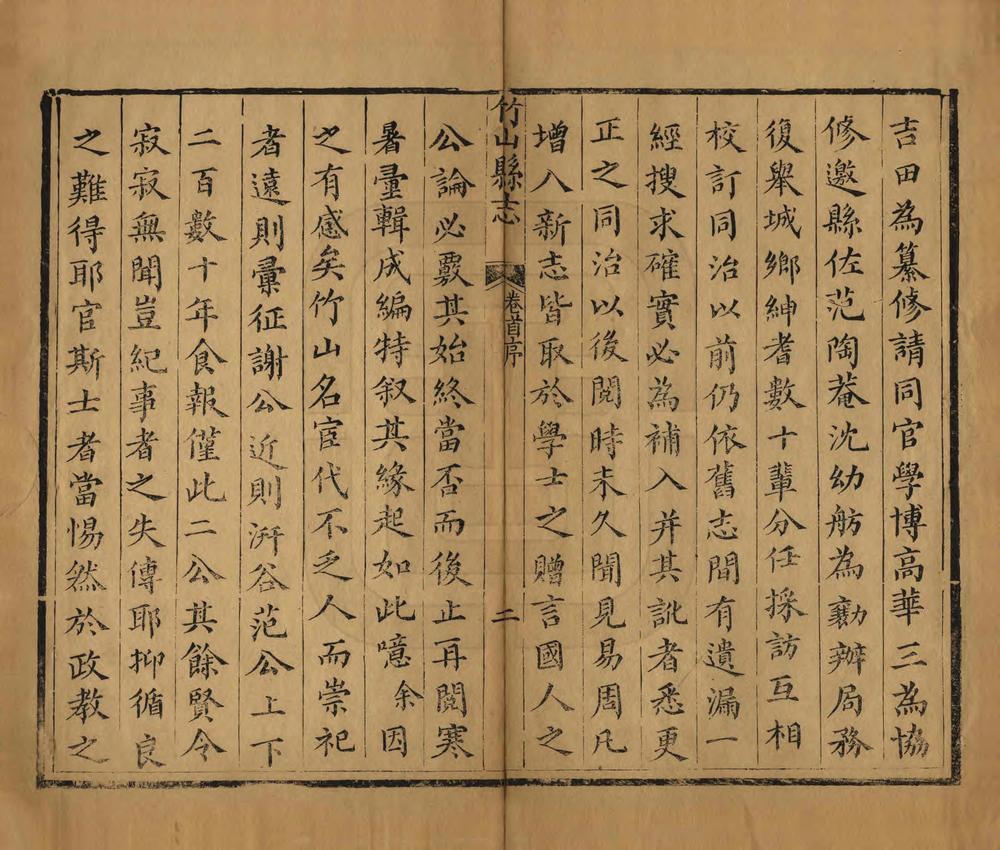 吉田為纂修請同官學博高華三為協
修邀縣佐范陶菴沈幼舫為勷辦局務
復舉城鄉紳耆數十輩分任採訪互相
校訂同治以前仍依舊志間有遺漏一
經搜求確實必為補入并其訛者悉更
正之同治以後閱時未久聞見易周凡
增入新志皆取於學士之贈言國人之
竹山縣志 卷首序 二
公論必覈其始終當否而後止再閱寒
暑彚輯成編特叙其緣起如此噫余因
之有感矣竹山名宦代不乏人而崇祀
者遠則彚征謝公近則洴谷范公上下
二百數十年食報僅此二公其餘賢令
寂寂無聞豈紀事者之失傳耶抑循良
之難得耶官斯土者當惕然於政教之